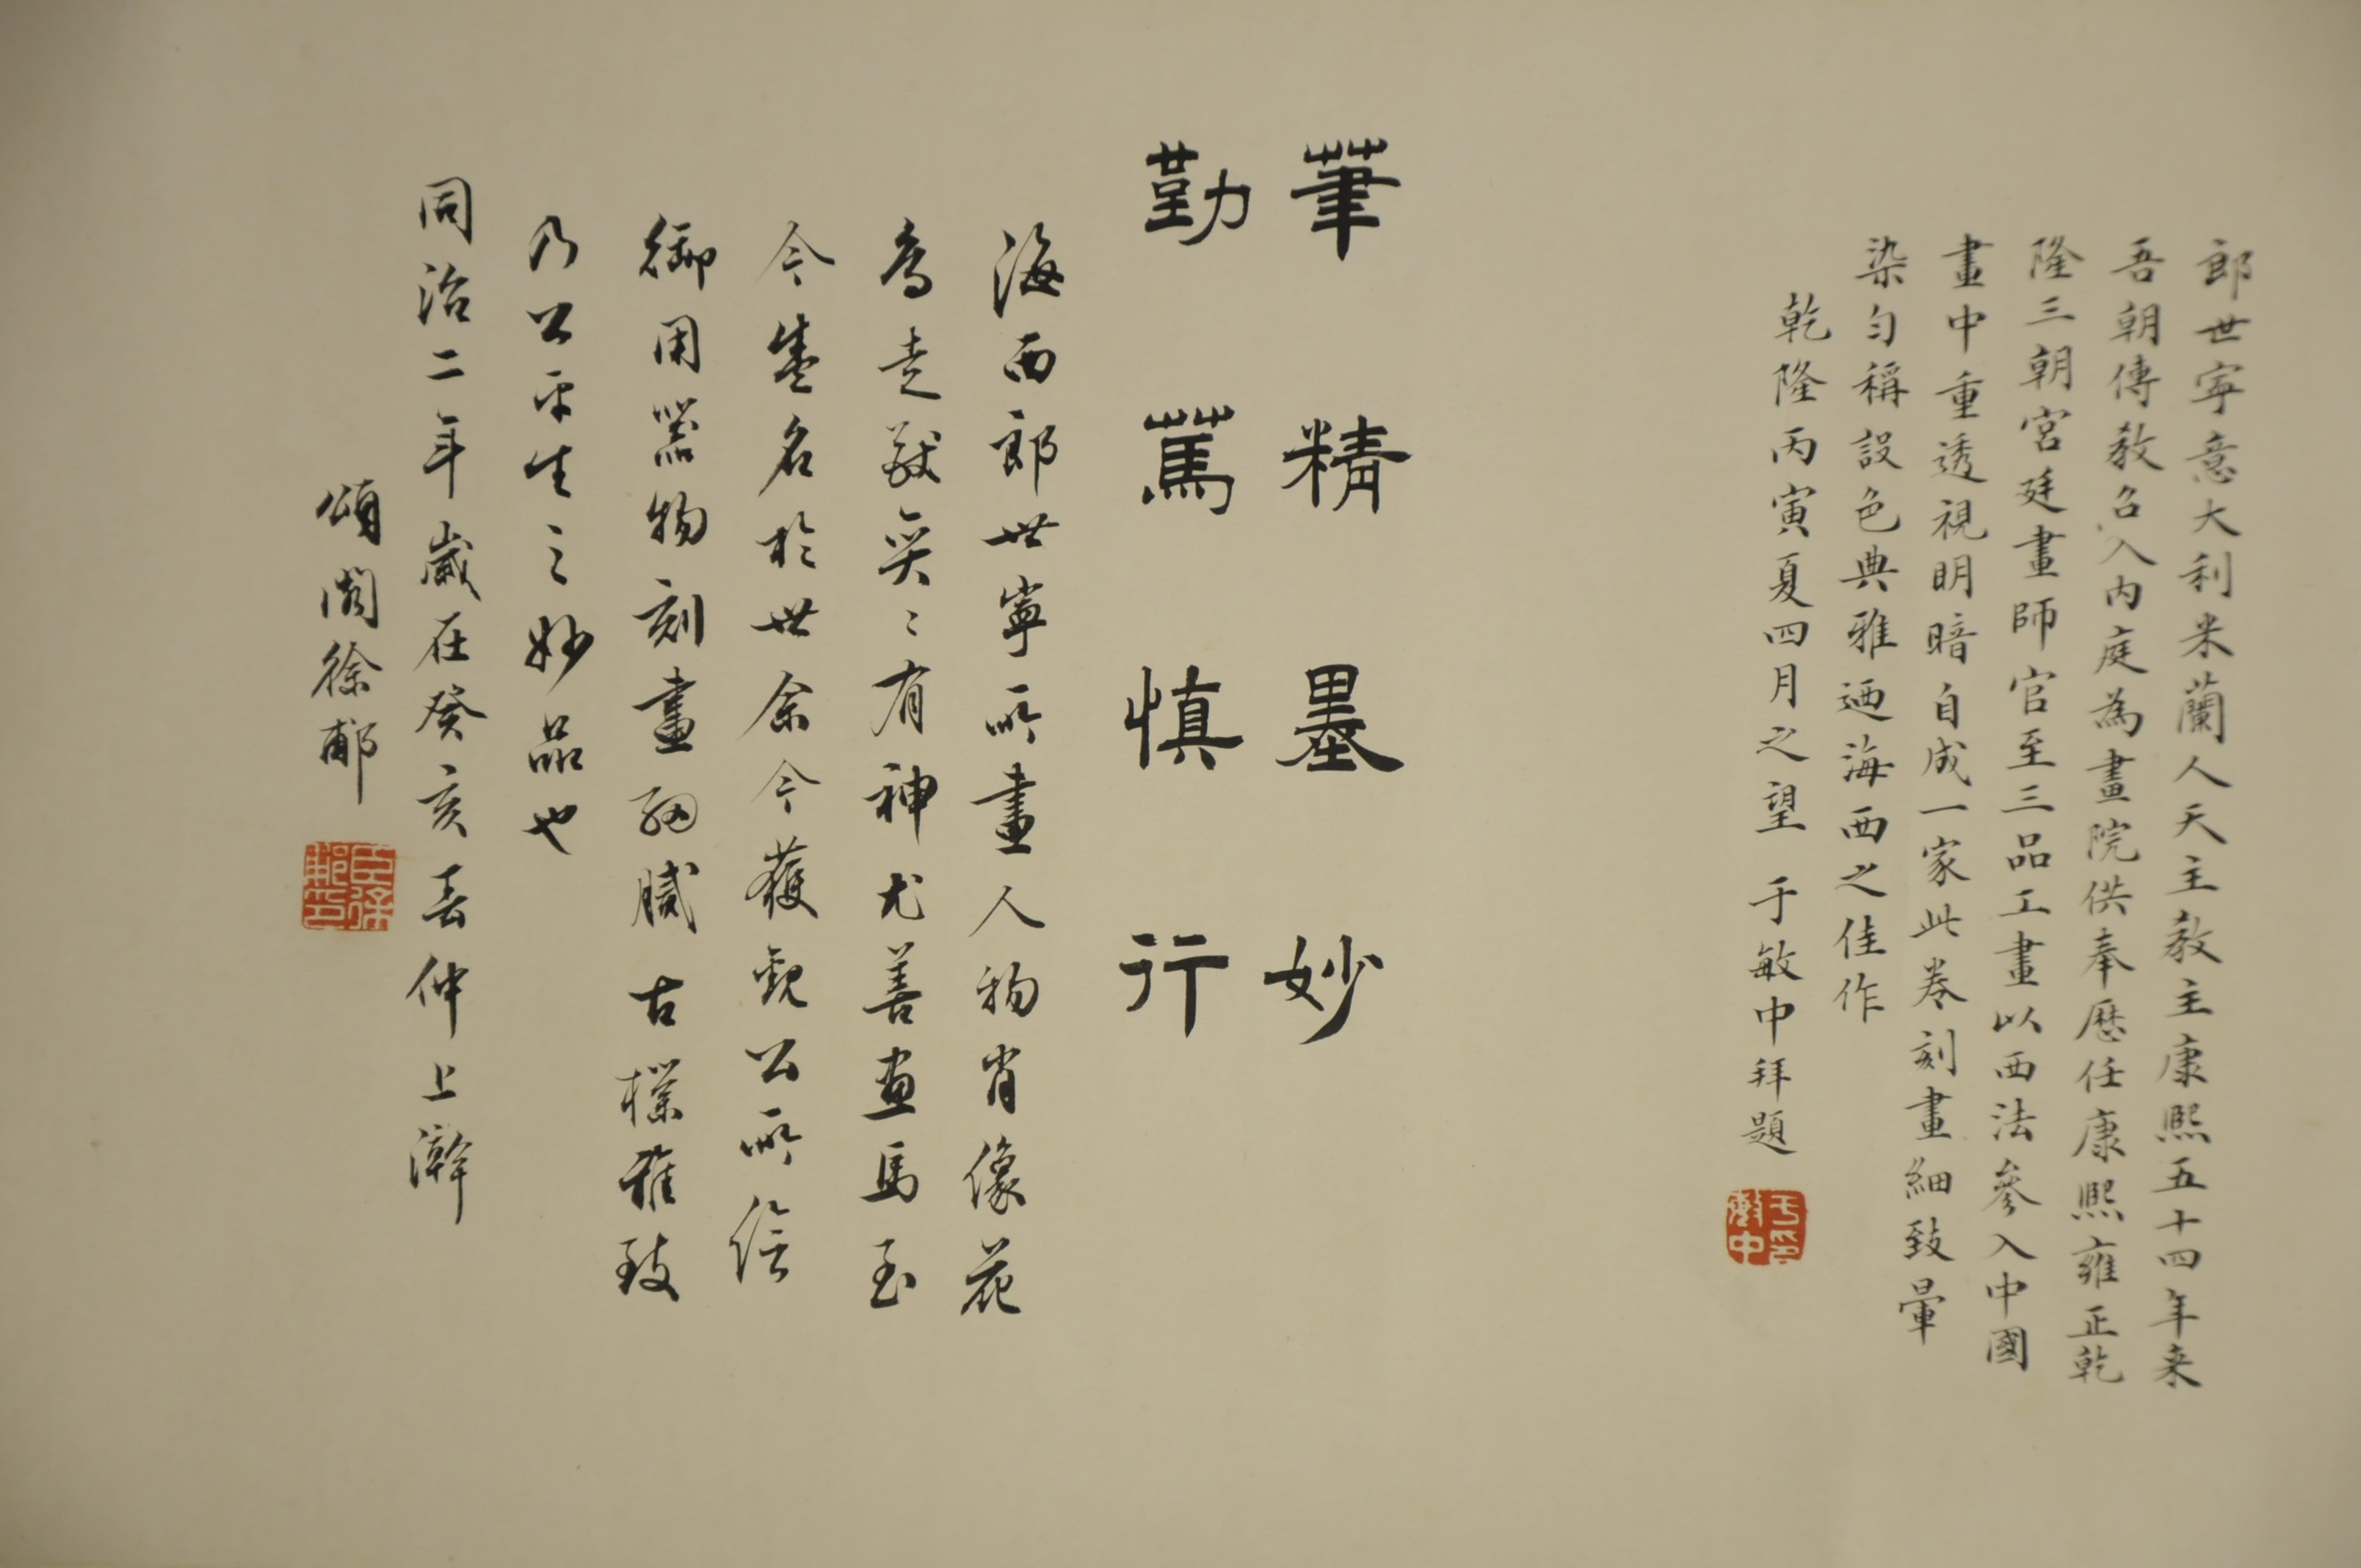 郎世寧意大利米蘭人天主教主康熙五十四年来
吾朝傳教召入內庭為畫院供奉歷任康熙雍正乾
隆三朝宮廷畫師官至三品工畫以西法參入中國
畫中重透視明暗自成一家此卷刻畫細致暈
染勻稱設色典雅迺海西之佳作
乾隆丙寅夏四月之望 于敏中拜題
筆精墨妙
勤篤慎行
海西郎世寧所畫人物肖像花
鳥走獸奕〻有神尤善画馬至
今盛名於世余今獲觀公所繪
御用器物刻畫細膩古樸雅致
乃公平生之妙品也
同治二年歲在癸亥春仲上澣
頌閣徐郙